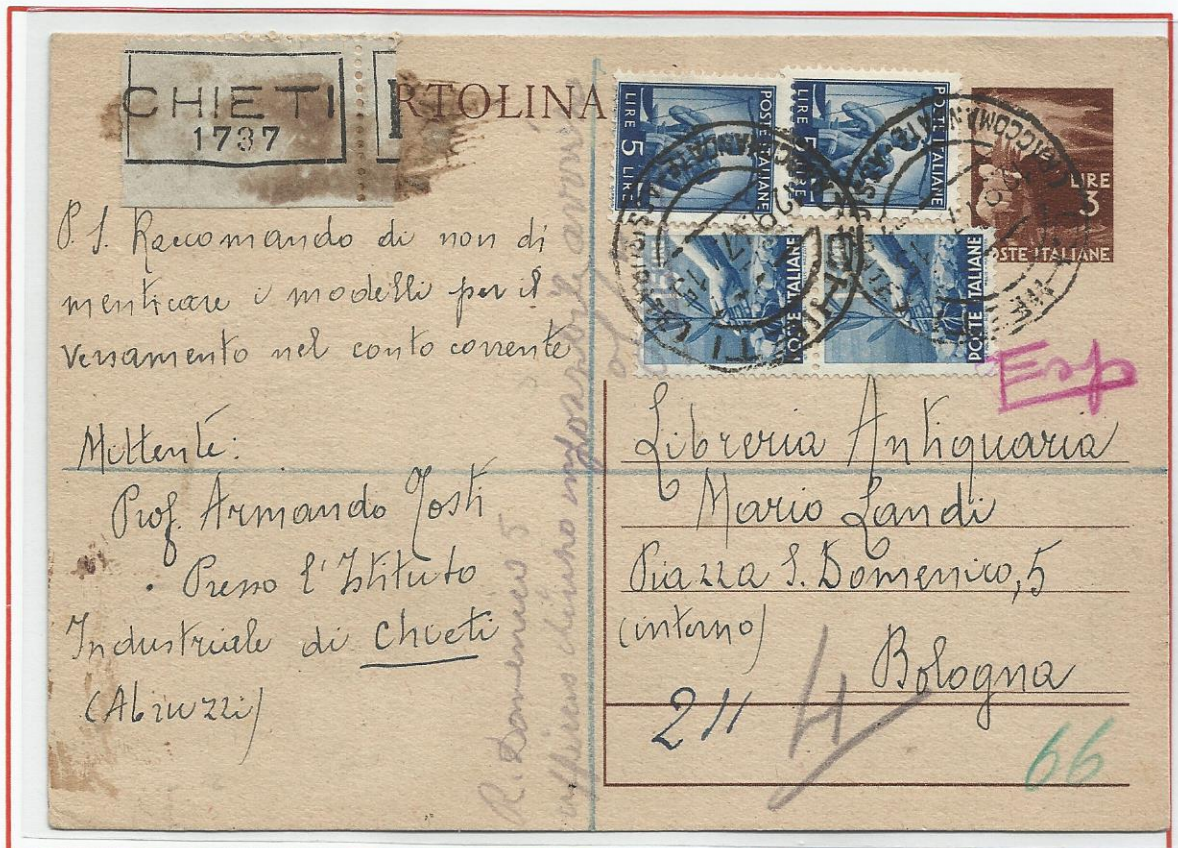 CHIETI
1737
R
RTOLINA
LIRE 5 LIRE
POSTE ITALIANE
LIRE 5 LIRE
POSTE ITALIANE
LIRE
3
POSTE ITALIANE
POSTE ITALIANE
POSTE ITALIANE
CHIETI
P.S. Raccomando di non di
menticare i modelli per il
versamento nel conto corrente
Mittente:
Prof. Armando Josti
Presso l'Istituto
Industriale di Chieti
(Abruzzi)
Esp
Libreria Antiquaria
Mario Landi
Piazza S. Domenico, 5
(interno)
Bologna
211
4
66
R. Domenico 5